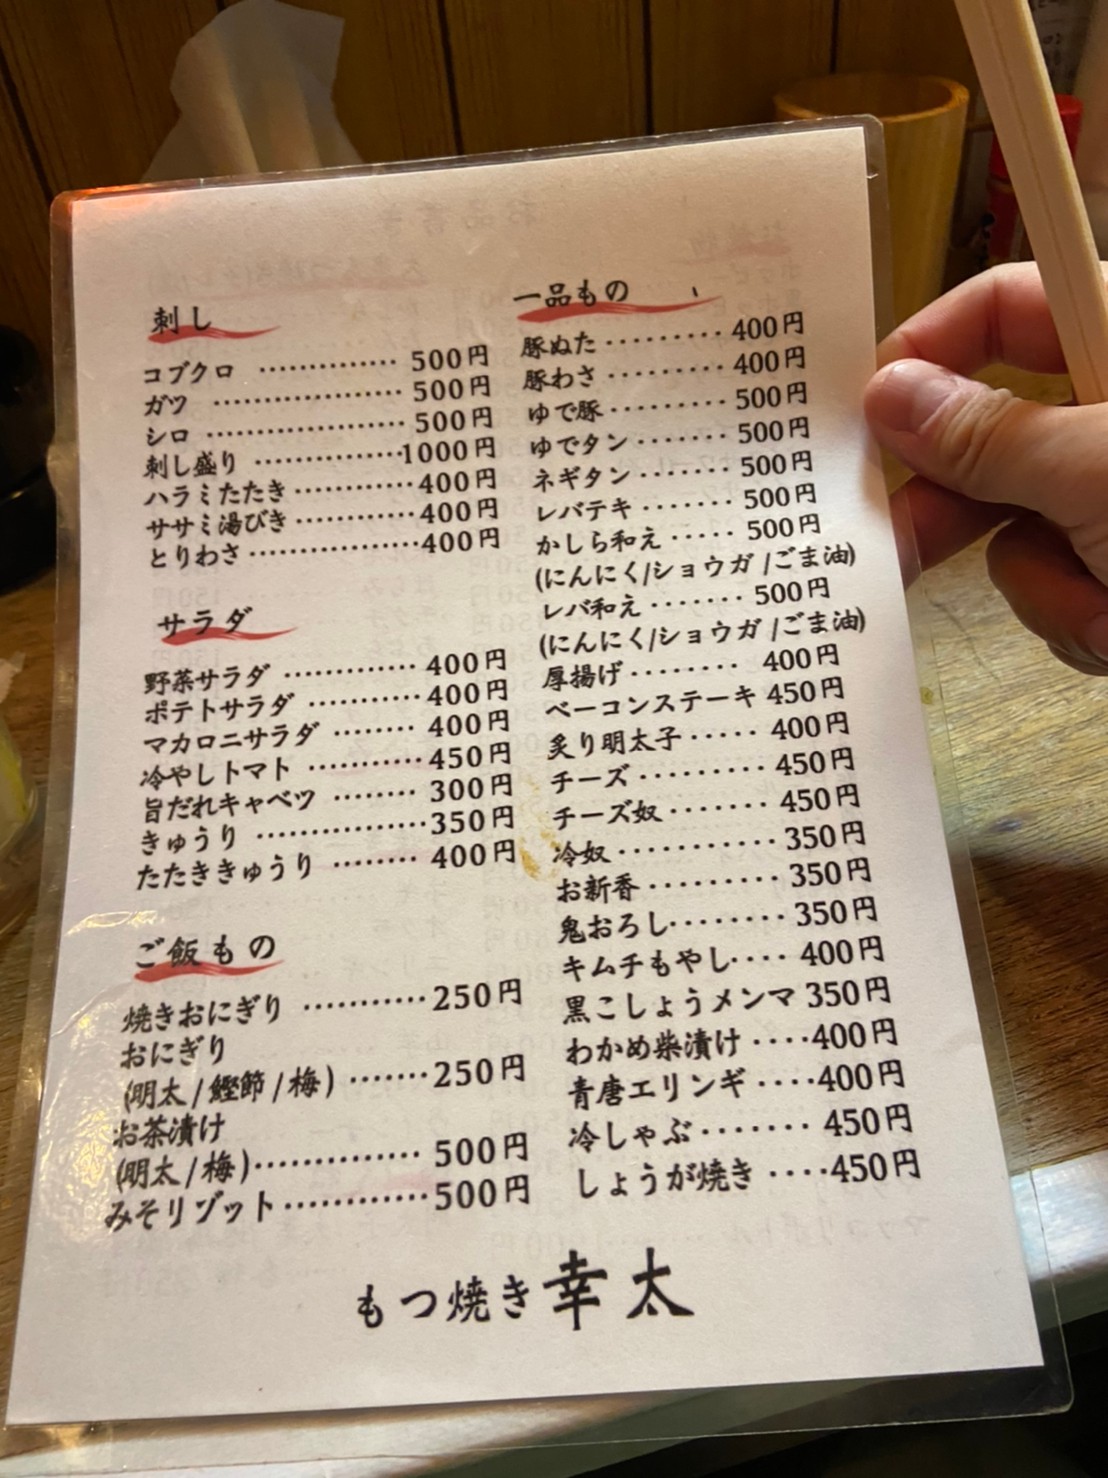 刺し
コブクロ ‥‥‥‥‥‥‥ 500円
ガツ ‥‥‥‥‥‥‥‥‥ 500円
シロ ‥‥‥‥‥‥‥‥‥ 500円
刺し盛り ‥‥‥‥‥‥‥1000円
ハラミたたき‥‥‥‥‥‥ 400円
ササミ湯びき‥‥‥‥‥‥ 400円
とりわさ‥‥‥‥‥‥‥‥400円
サラダ
野菜サラダ ‥‥‥‥‥‥ 400円
ポテトサラダ ‥‥‥‥‥ 400円
マカロニサラダ ‥‥‥‥ 400円
冷やしトマト ‥‥‥‥‥ 450円
旨だれキャベツ ‥‥‥‥ 300円
きゅうり ‥‥‥‥‥‥‥‥350円
たたききゅうり ‥‥‥‥ 400円
ご飯もの
焼きおにぎり ‥‥‥‥‥250円
おにぎり
(明太/鰹節/梅) ‥‥‥250円
お茶漬け
(明太/梅)‥‥‥‥‥‥ 500円
みそリゾット‥‥‥‥‥‥500円
一品もの
豚ぬた‥‥‥‥ 400円
豚わさ‥‥‥‥ 400円
ゆで豚‥‥‥‥ 500円
ゆでタン‥‥‥ 500円
ネギタン‥‥‥ 500円
レバテキ‥‥‥ 500円
かしら和え‥‥ 500円
(にんにく/ショウガ /ごま油)
レバ和え‥‥‥ 500円
(にんにく/ショウガ /ごま油)
厚揚げ‥‥‥‥ 400円
ベーコンステーキ 450円
炙り明太子‥‥ 400円
チーズ‥‥‥‥ 450円
チーズ奴‥‥‥ 450円
冷奴‥‥‥‥‥ 350円
お新香‥‥‥‥ 350円
鬼おろし‥‥‥ 350円
キムチもやし‥‥ 400円
黒こしょうメンマ 350円
わかめ柴漬け ‥‥400円
青唐エリンギ‥‥400円
冷しゃぶ‥‥‥ 450円
しょうが焼き ‥‥450円
もつ焼き 幸太